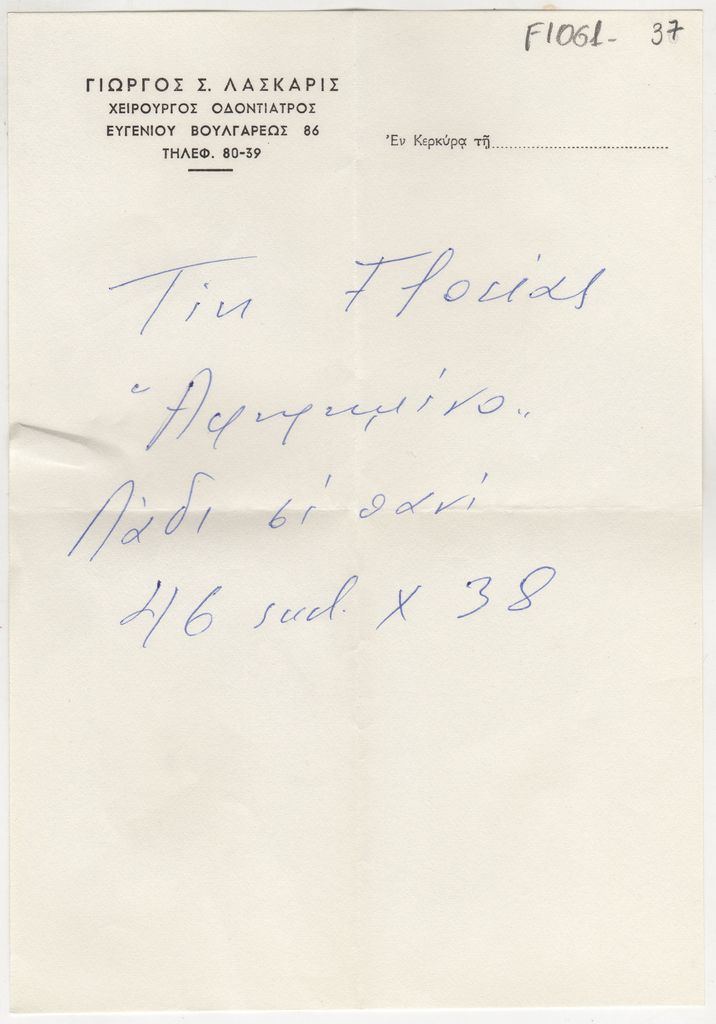 F1061- 37
ΓΙΩΡΓΟΣ Σ. ΛΑΣΚΑΡΙΣ
ΧΕΙΡΟΥΡΓΟΣ ΟΔΟΝΤΙΑΤΡΟΣ
ΕΥΓΕΝΙΟΥ ΒΟΥΛΓΑΡΕΩΣ 86
ΤΗΛΕΦ. 80-39
Ἐν Κερκύρᾳ τῇ
Τίν Φλοκίας
"Αφηρημένο"
Λάδι σέ πανί
46 x 38